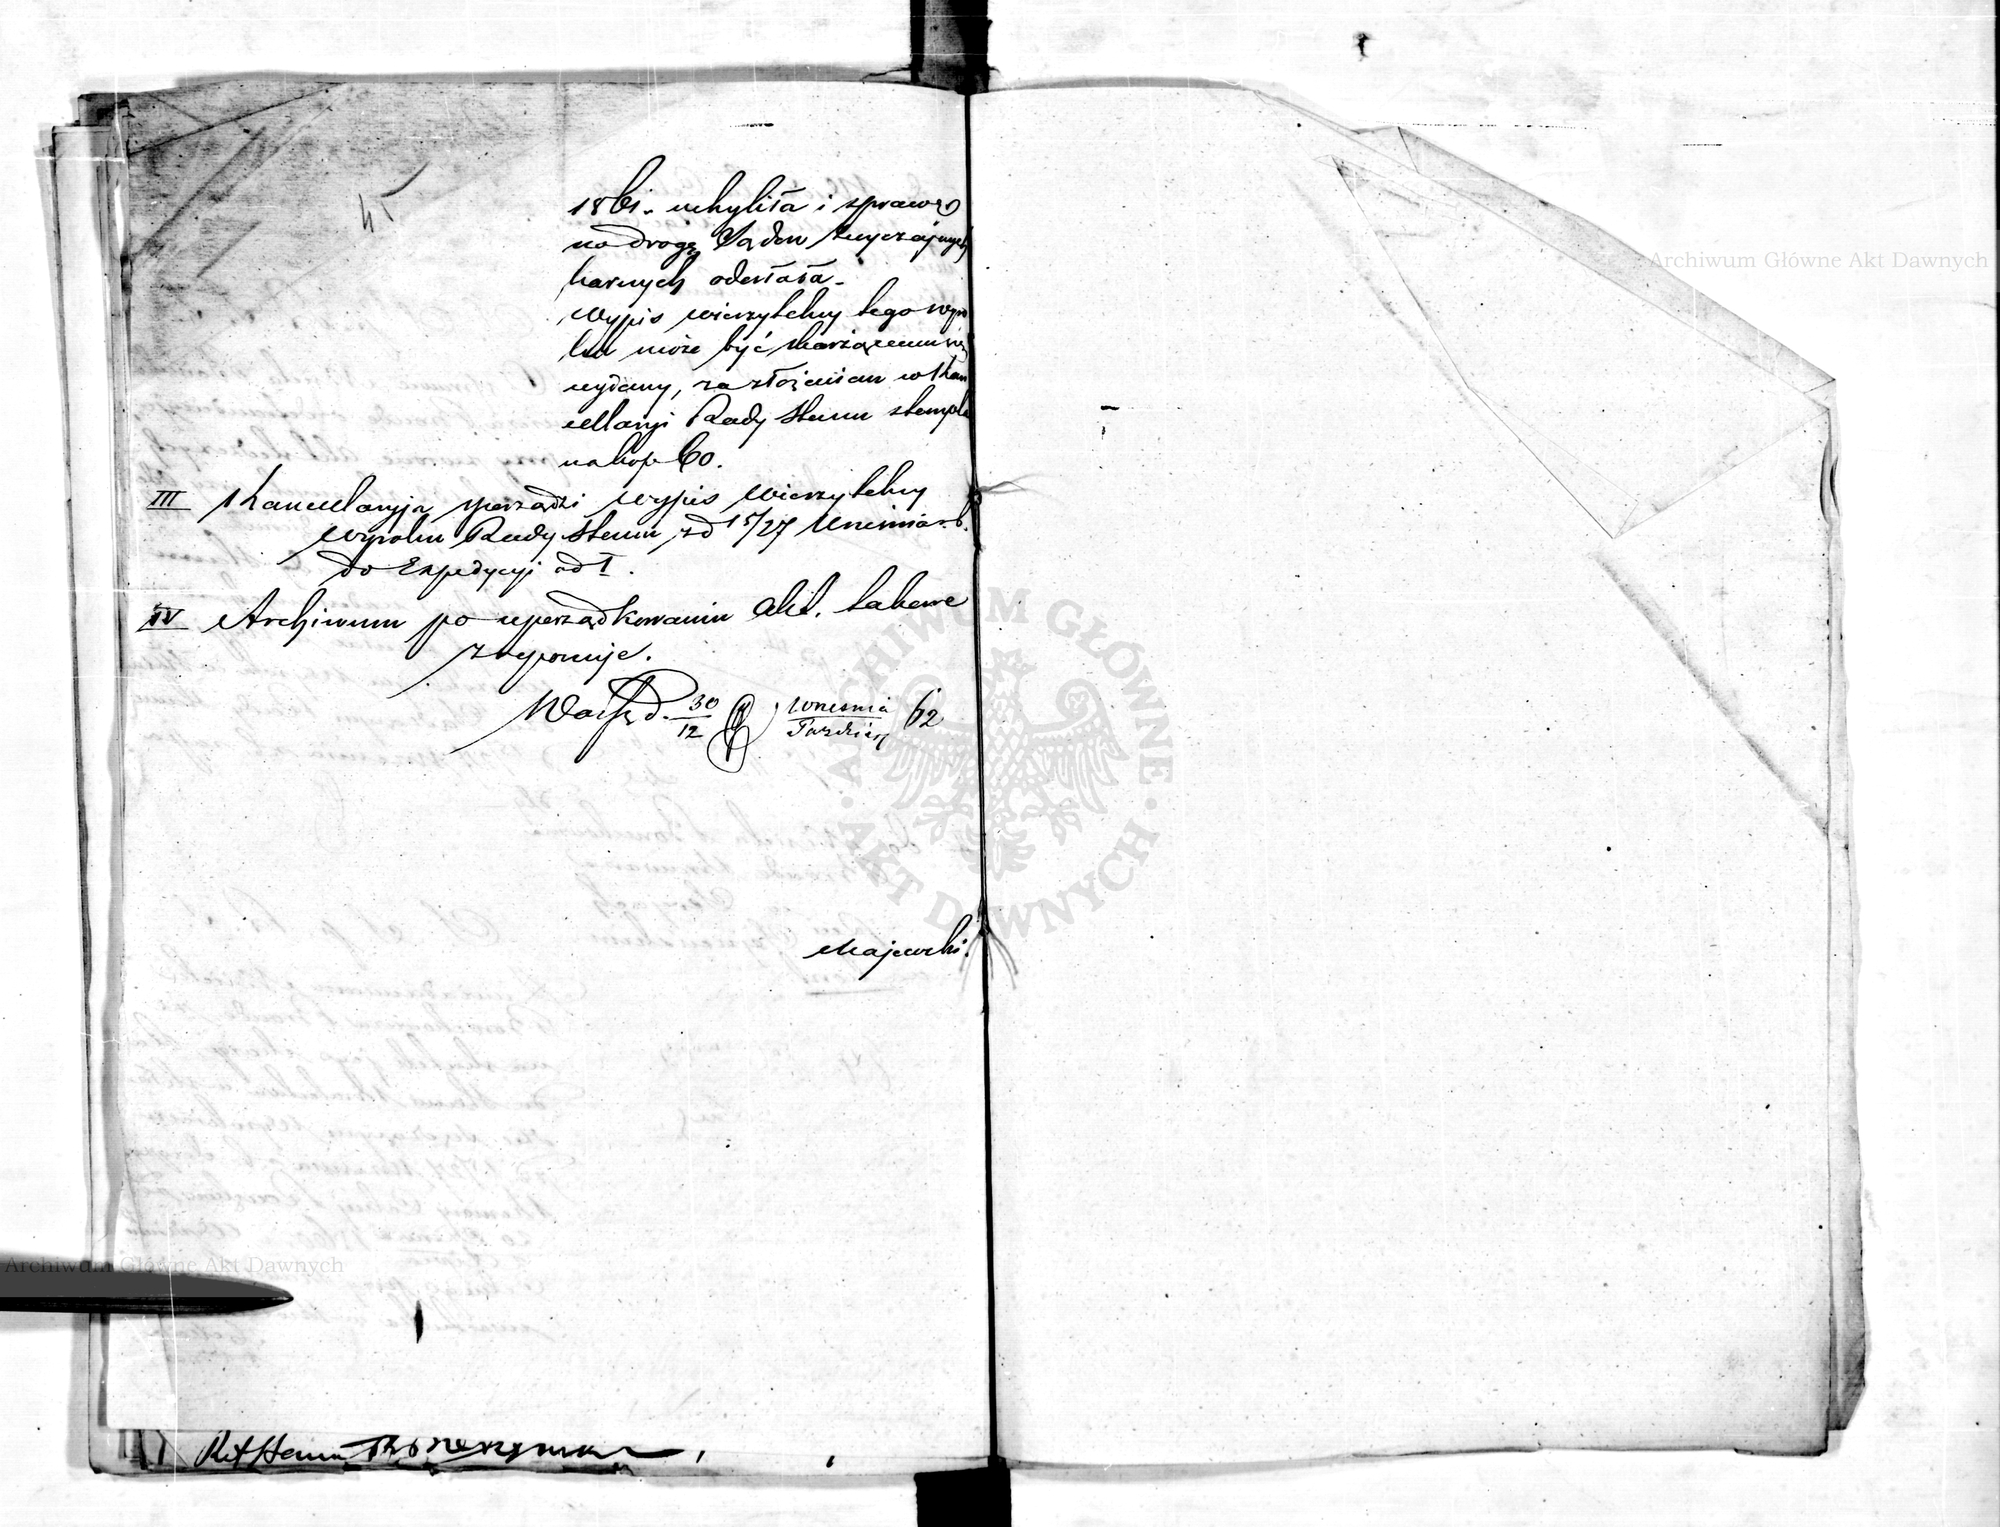 45
1861. uchyliła i sprawę
na drogę Sądów zwyczajnych
karnych odesłała.
Wypis wierzytelny tego wyro
ku może być skarżącemu się
wydany, za złożeniem w Kan
cellaryi Rady Stanu stempla
na kop 60.
III Kancellaryja sporządzi wypis wierzytelny
wyroku Rady Stanu z d 15/27 Września r.b.
do Expedycyi ad I.
IV Archiwum po uporządkowaniu akt. takowe
zreponuje.
d. 30/12 Września/Paździer 62
Majewski.
Ref Stanu
Archiwum Główne Akt Dawnych
Archiwum Główne Akt Dawnych
ARCHIWUM GŁÓWNE · AKT DAWNYCH ·